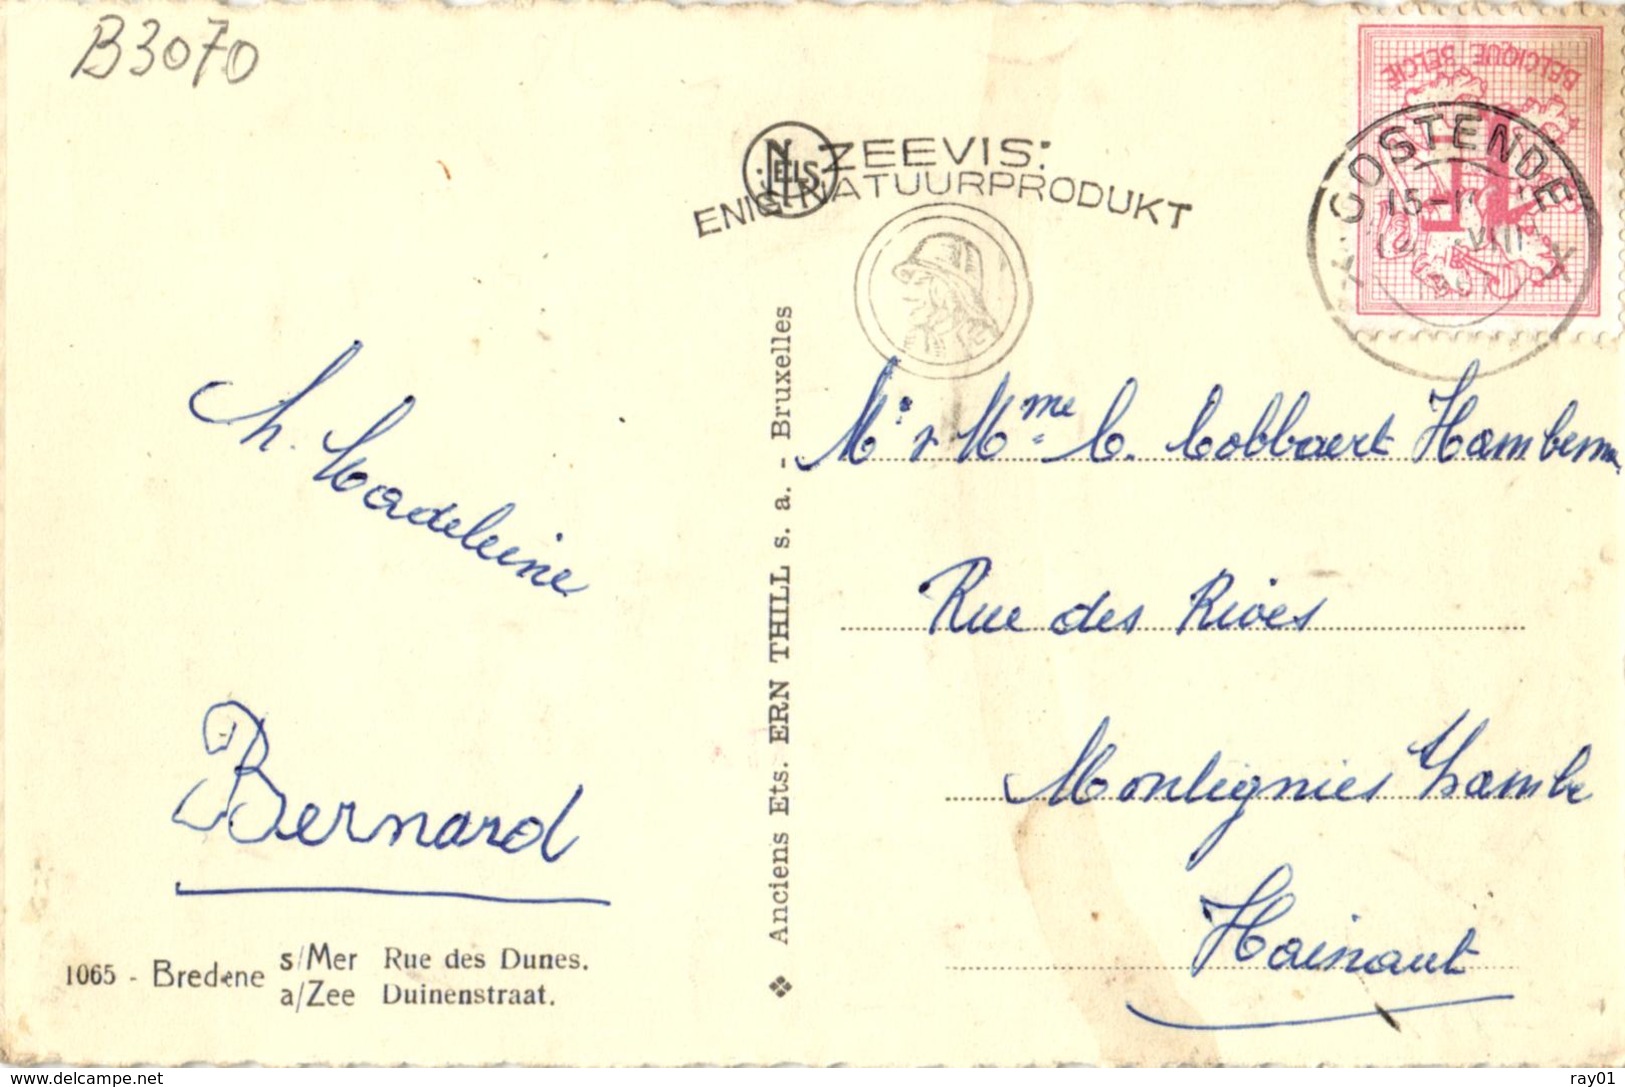 B3070
NELS
ZEEVIS:
ENIG NATUURPRODUKT
BELGIQUE BELGIË
OOSTENDE
15-
VIII
M. Madeleine
Bernard
1065 - Bredene s/Mer Rue des Dunes.
a/Zee Duinenstraat.
Anciens Ets. ERN THILL s. a. - Bruxelles
Mr & Mme C. Cobbaert
Rue des Rives
Montignies s/Sambre
Hainaut
www.delcampe.net
ray01